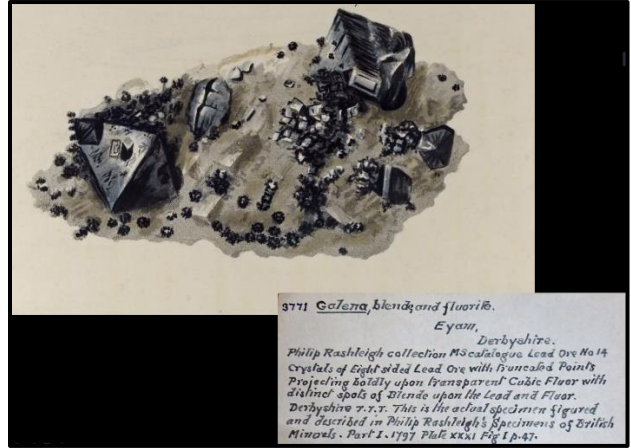 3771 Galena, blende, and fluorite.
Eyam,
Derbyshire.
Philip Rashleigh collection MS catalogue Lead Ore No 14
Crystals of Eight sided Lead Ore with truncated Points
Projecting boldly upon transparent Cubic Fluor with
distinct spots of Blende upon the Lead and Fluor.
Derbyshire T.T.T. This is the actual specimen figured
and described in Philip Rashleigh's Specimens of British
Minerals. Part I. 1797 Plate XXXI Fig I p.47.